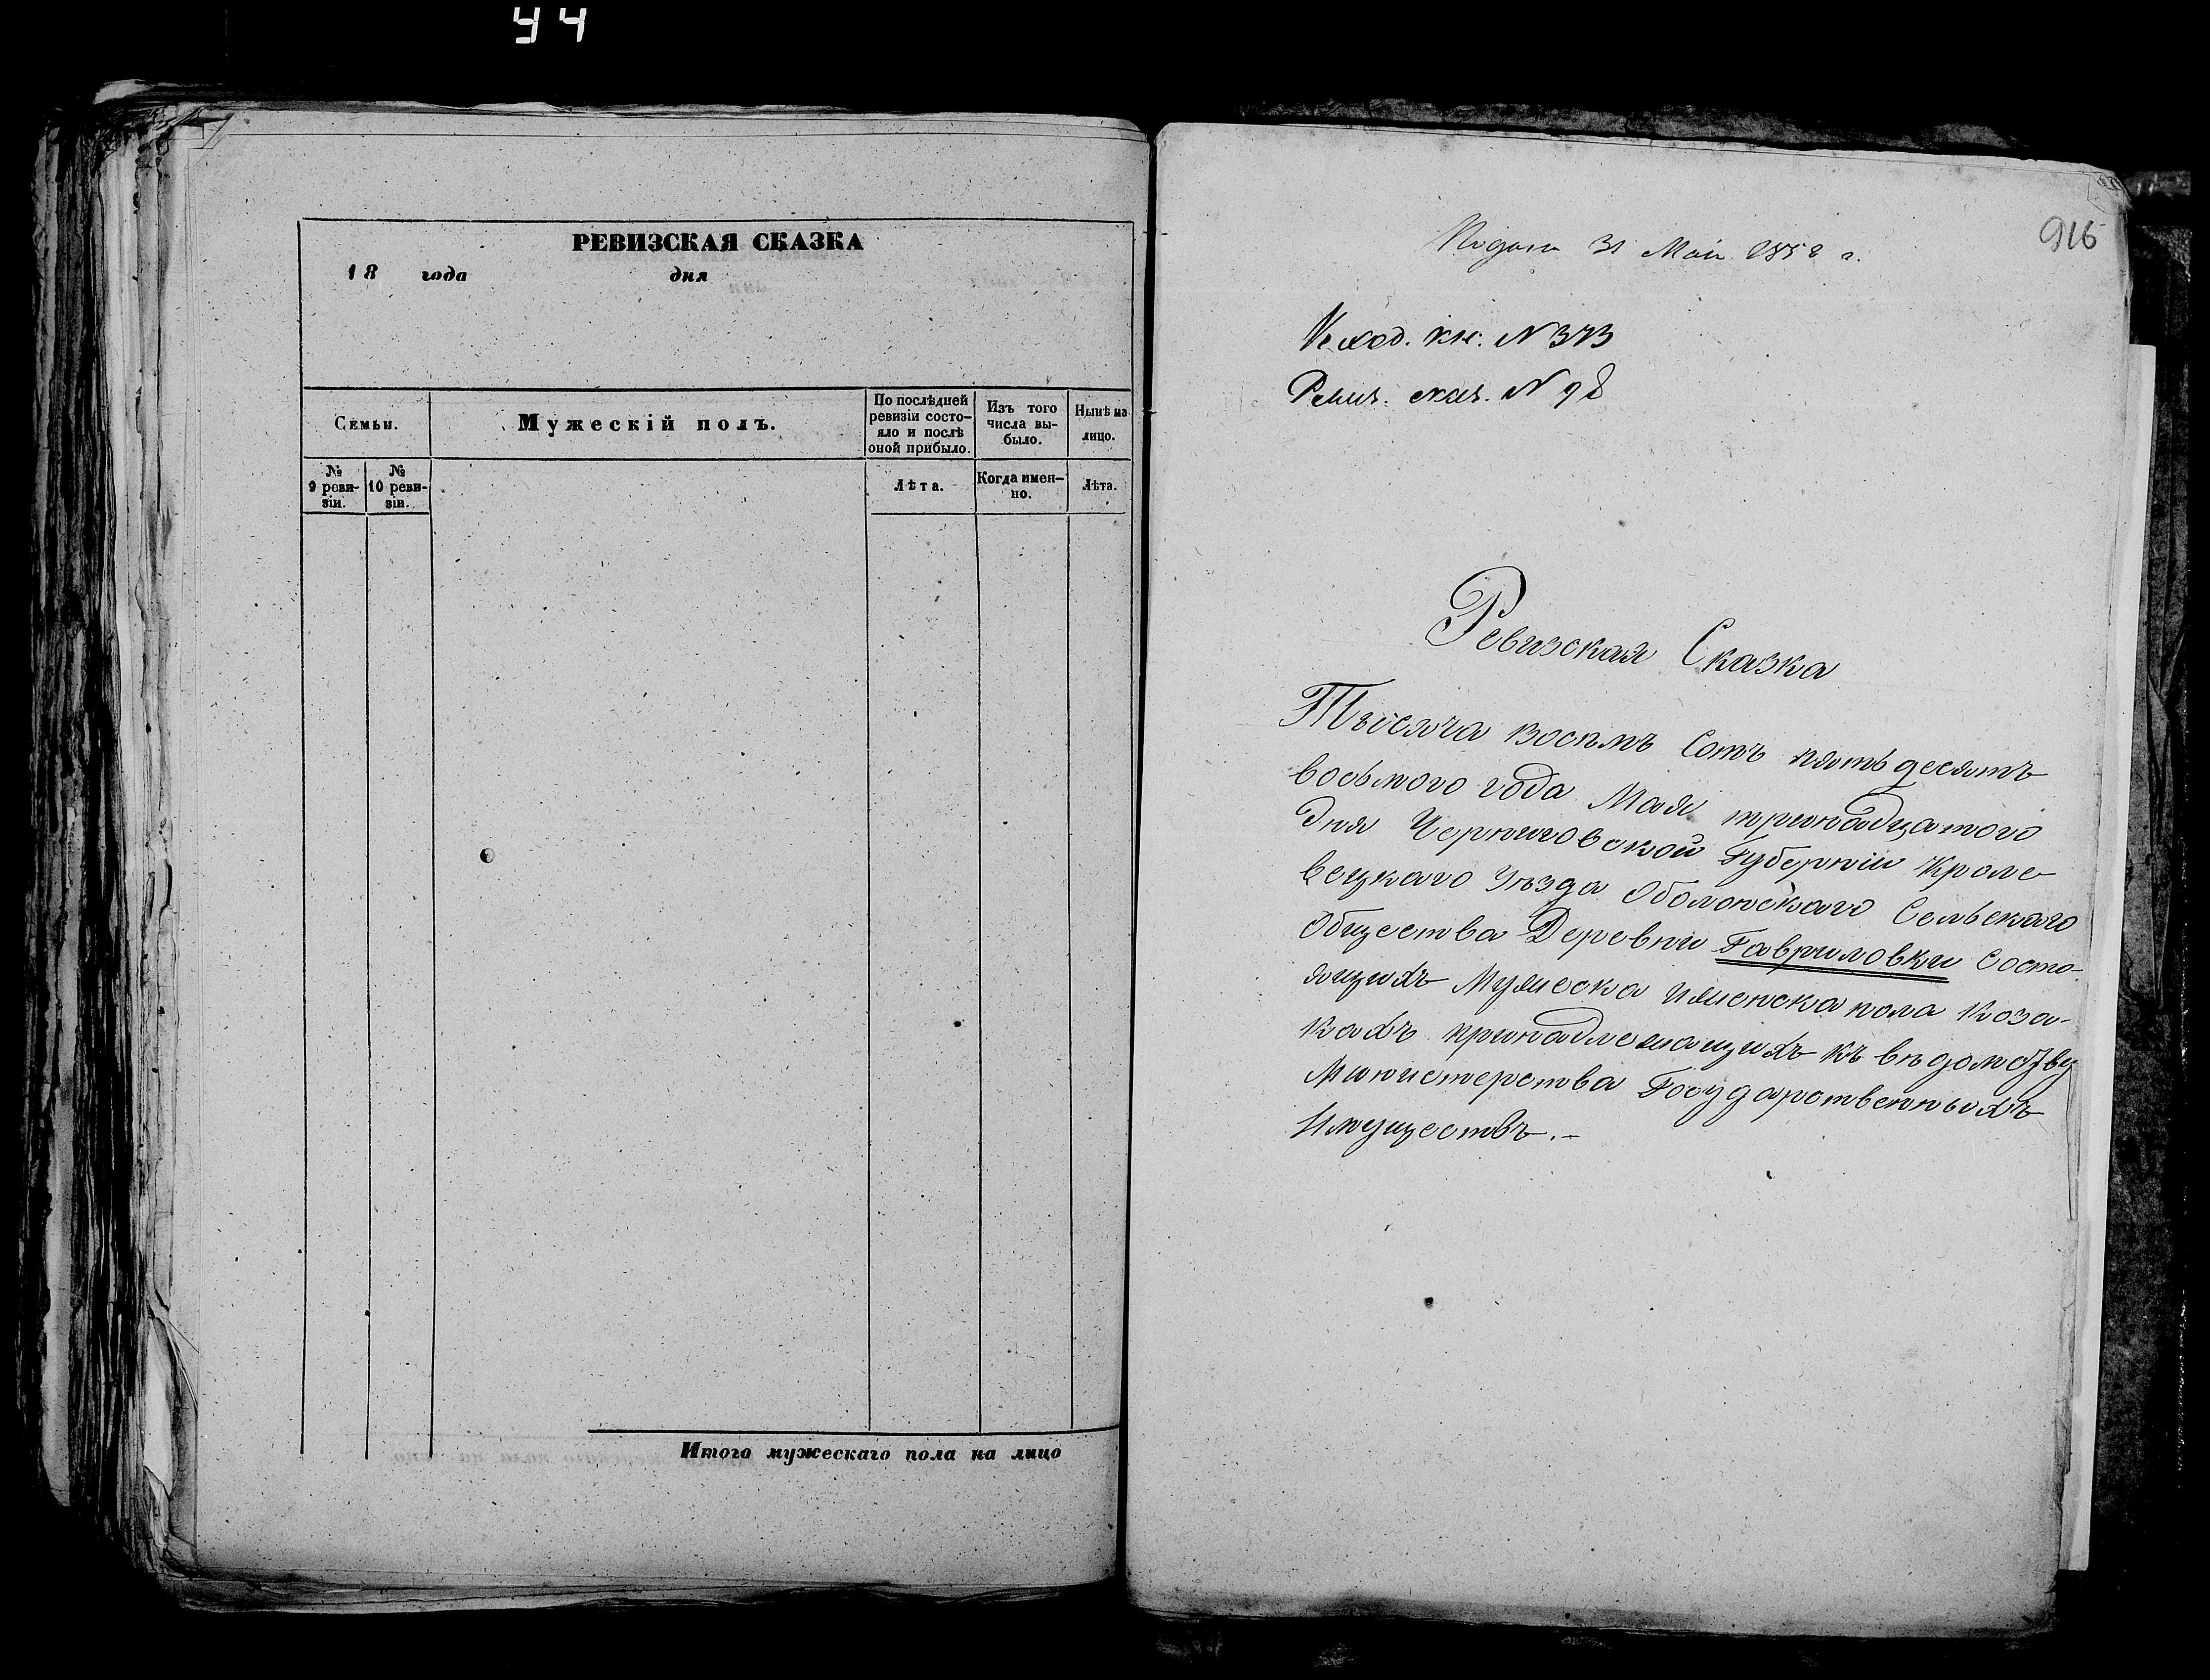 44
РЕВИЗСКАЯ СКАЗКА
18 года дня
Семьи.
Мужескій полъ.
По послѣдней
ревизіи состо-
яло и послѣ
оной прибыло.
Изъ того
числа вы-
было.
Нынѣ на
лицо.
№
9 реви-
зіи.
№
10 реви-
зіи.
Лѣта.
Когда имен-
но.
Лѣта.
Итого мужескаго пола на лицо
916
Подана 31 Мая 1858 г.
кн. N 373
Ревиз. сказ. N 98
Ревизская Сказка
Тысяча восемь Сотъ пятьдесятъ
восьмого года Мая тринадцатого
дня Черниговской Губерніи Кроле-
вецкаго Уѣзда Оболонскаго Сельскаго
Общества Деревни Гавриловки Состо-
ящихъ Мужеска и женска пола Коза-
кахъ принадлежащихъ къ вѣдомству
Министерства Государственныхъ
Имуществъ.-